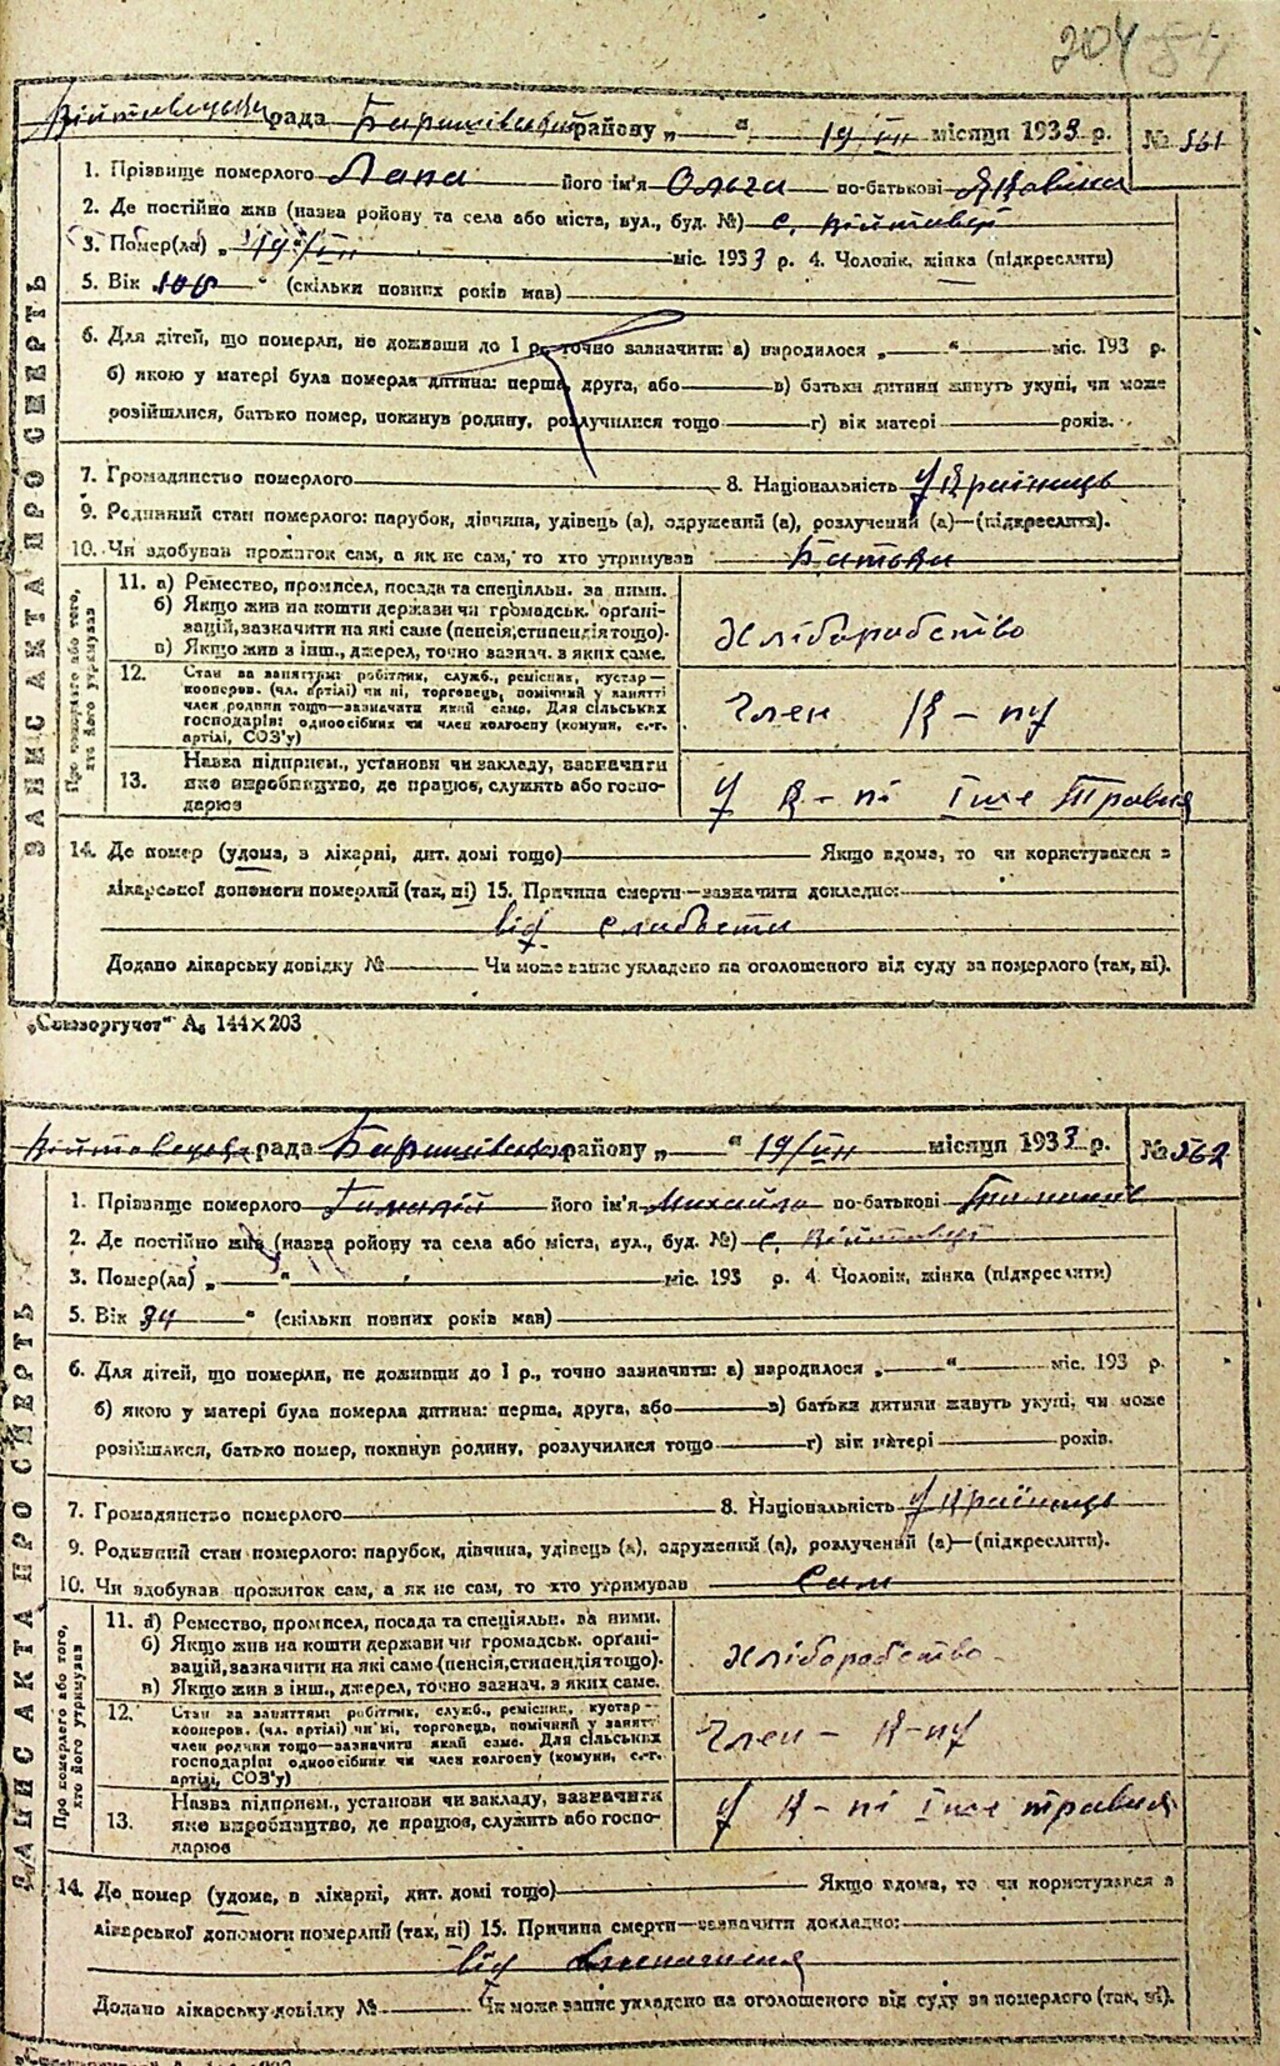 204 54
рада Баришівського району „ “ 19/VII місяця 1933 р. № 561
1. Прізвище померлого Лапа його ім'я Ольга по-батькові Яковівна
2. Де постійно жив (назва ройону та села або міста, вул., буд. №) с. Війтовці
3. Помер(ла) „ 19/VII міс. 1933 р. 4. Чоловік, жінка (підкреслити)
5. Вік “ (скільки повних років мав)
ЗАПИС АКТА ПРО СМЕРТЬ
6. Для дітей, що померли, не доживши до 1 р., точно зазначити: а) народилося „ “ міс. 193 р.
б) якою у матері була померла дитина: перша, друга, або в) батьки дитини живуть укупі, чи може
розійшлися, батько помер, покинув родину, розлучилися тощо г) вік матері років.
7. Громадянство померлого 8. Національність Українець
9. Родинний стан померлого: парубок, дівчина, удівець (а), одружений (а), розлучений (а)—(підкреслити).
10. Чи здобував прожиток сам, а як не сам, то хто утримував Батьки
Про померлого або того, хто його утримував
11. а) Ремество, промисел, посада та спеціяльн. за ними.
б) Якщо жив на кошти держави чи громадськ. органі-
зацій, зазначити на які саме (пенсія, стипендія тощо).
в) Якщо жив з інш., джерел, точно зазнач. з яких саме.
Хліборобство
12. Стан за заняттям: робітник, служб., ремісник, кустар—
кооперов. (чл. артілі) чи ні, торговець, помічний у занятті
член родини тощо—зазначити який саме. Для сільських
господарів: одноосібник чи член колгоспу (комуни, с.-г.
артілі, СОЗ'у)
Член К-пу
13. Назва підприєм., установи чи закладу, зазначити
яке виробництво, де працює, служить або госпо-
дарює
у К-пі Іше Травня
14. Де помер (удома, в лікарні, дит. домі тощо) Якщо вдома, то чи користувався з
лікарської допомоги померлий (так, ні) 15. Причина смерти—зазначити докладно:
від слабости
Додано лікарську довідку № Чи може запис укладено на оголошеного від суду за померлого (так, ні).
„Союзоргучет“ А₆ 144×203
рада Баришівського району „ “ 19/VII місяця 1933 р. № 562
1. Прізвище померлого Гамалій його ім'я Михайло по-батькові
2. Де постійно жив (назва ройону та села або міста, вул., буд. №) с. Війтовці
3. Помер(ла) „ “ міс. 193 р. 4. Чоловік, жінка (підкреслити)
5. Вік 34 “ (скільки повних років мав)
ЗАПИС АКТА ПРО СМЕРТЬ
6. Для дітей, що померли, не доживши до 1 р., точно зазначити: а) народилося „ “ міс. 193 р.
б) якою у матері була померла дитина: перша, друга, або в) батьки дитини живуть укупі, чи може
розійшлися, батько помер, покинув родину, розлучилися тощо г) вік матері років.
7. Громадянство померлого 8. Національність Українець
9. Родинний стан померлого: парубок, дівчина, удівець (а), одружений (а), розлучений (а)—(підкреслити).
10. Чи здобував прожиток сам, а як не сам, то хто утримував Сам
Про померлого або того, хто його утримував
11. а) Ремество, промисел, посада та спеціяльн. за ними.
б) Якщо жив на кошти держави чи громадськ. органі-
зацій, зазначити на які саме (пенсія, стипендія тощо).
в) Якщо жив з інш., джерел, точно зазнач. з яких саме.
Хліборобство
12. Стан за заняттям: робітник, служб., ремісник, кустар—
кооперов. (чл. артілі) чи ні, торговець, помічний у занятті
член родини тощо—зазначити який саме. Для сільських
господарів: одноосібник чи член колгоспу (комуни, с.-г.
артілі, СОЗ'у)
Член - К-пу
13. Назва підприєм., установи чи закладу, зазначити
яке виробництво, де працює, служить або госпо-
дарює
у К-пі Іше травня
14. Де помер (удома, в лікарні, дит. домі тощо) Якщо вдома, то чи користувався з
лікарської допомоги померлий (так, ні) 15. Причина смерти—зазначити докладно:
від
Додано лікарську довідку № Чи може запис укладено на оголошеного від суду за померлого (так, ні).